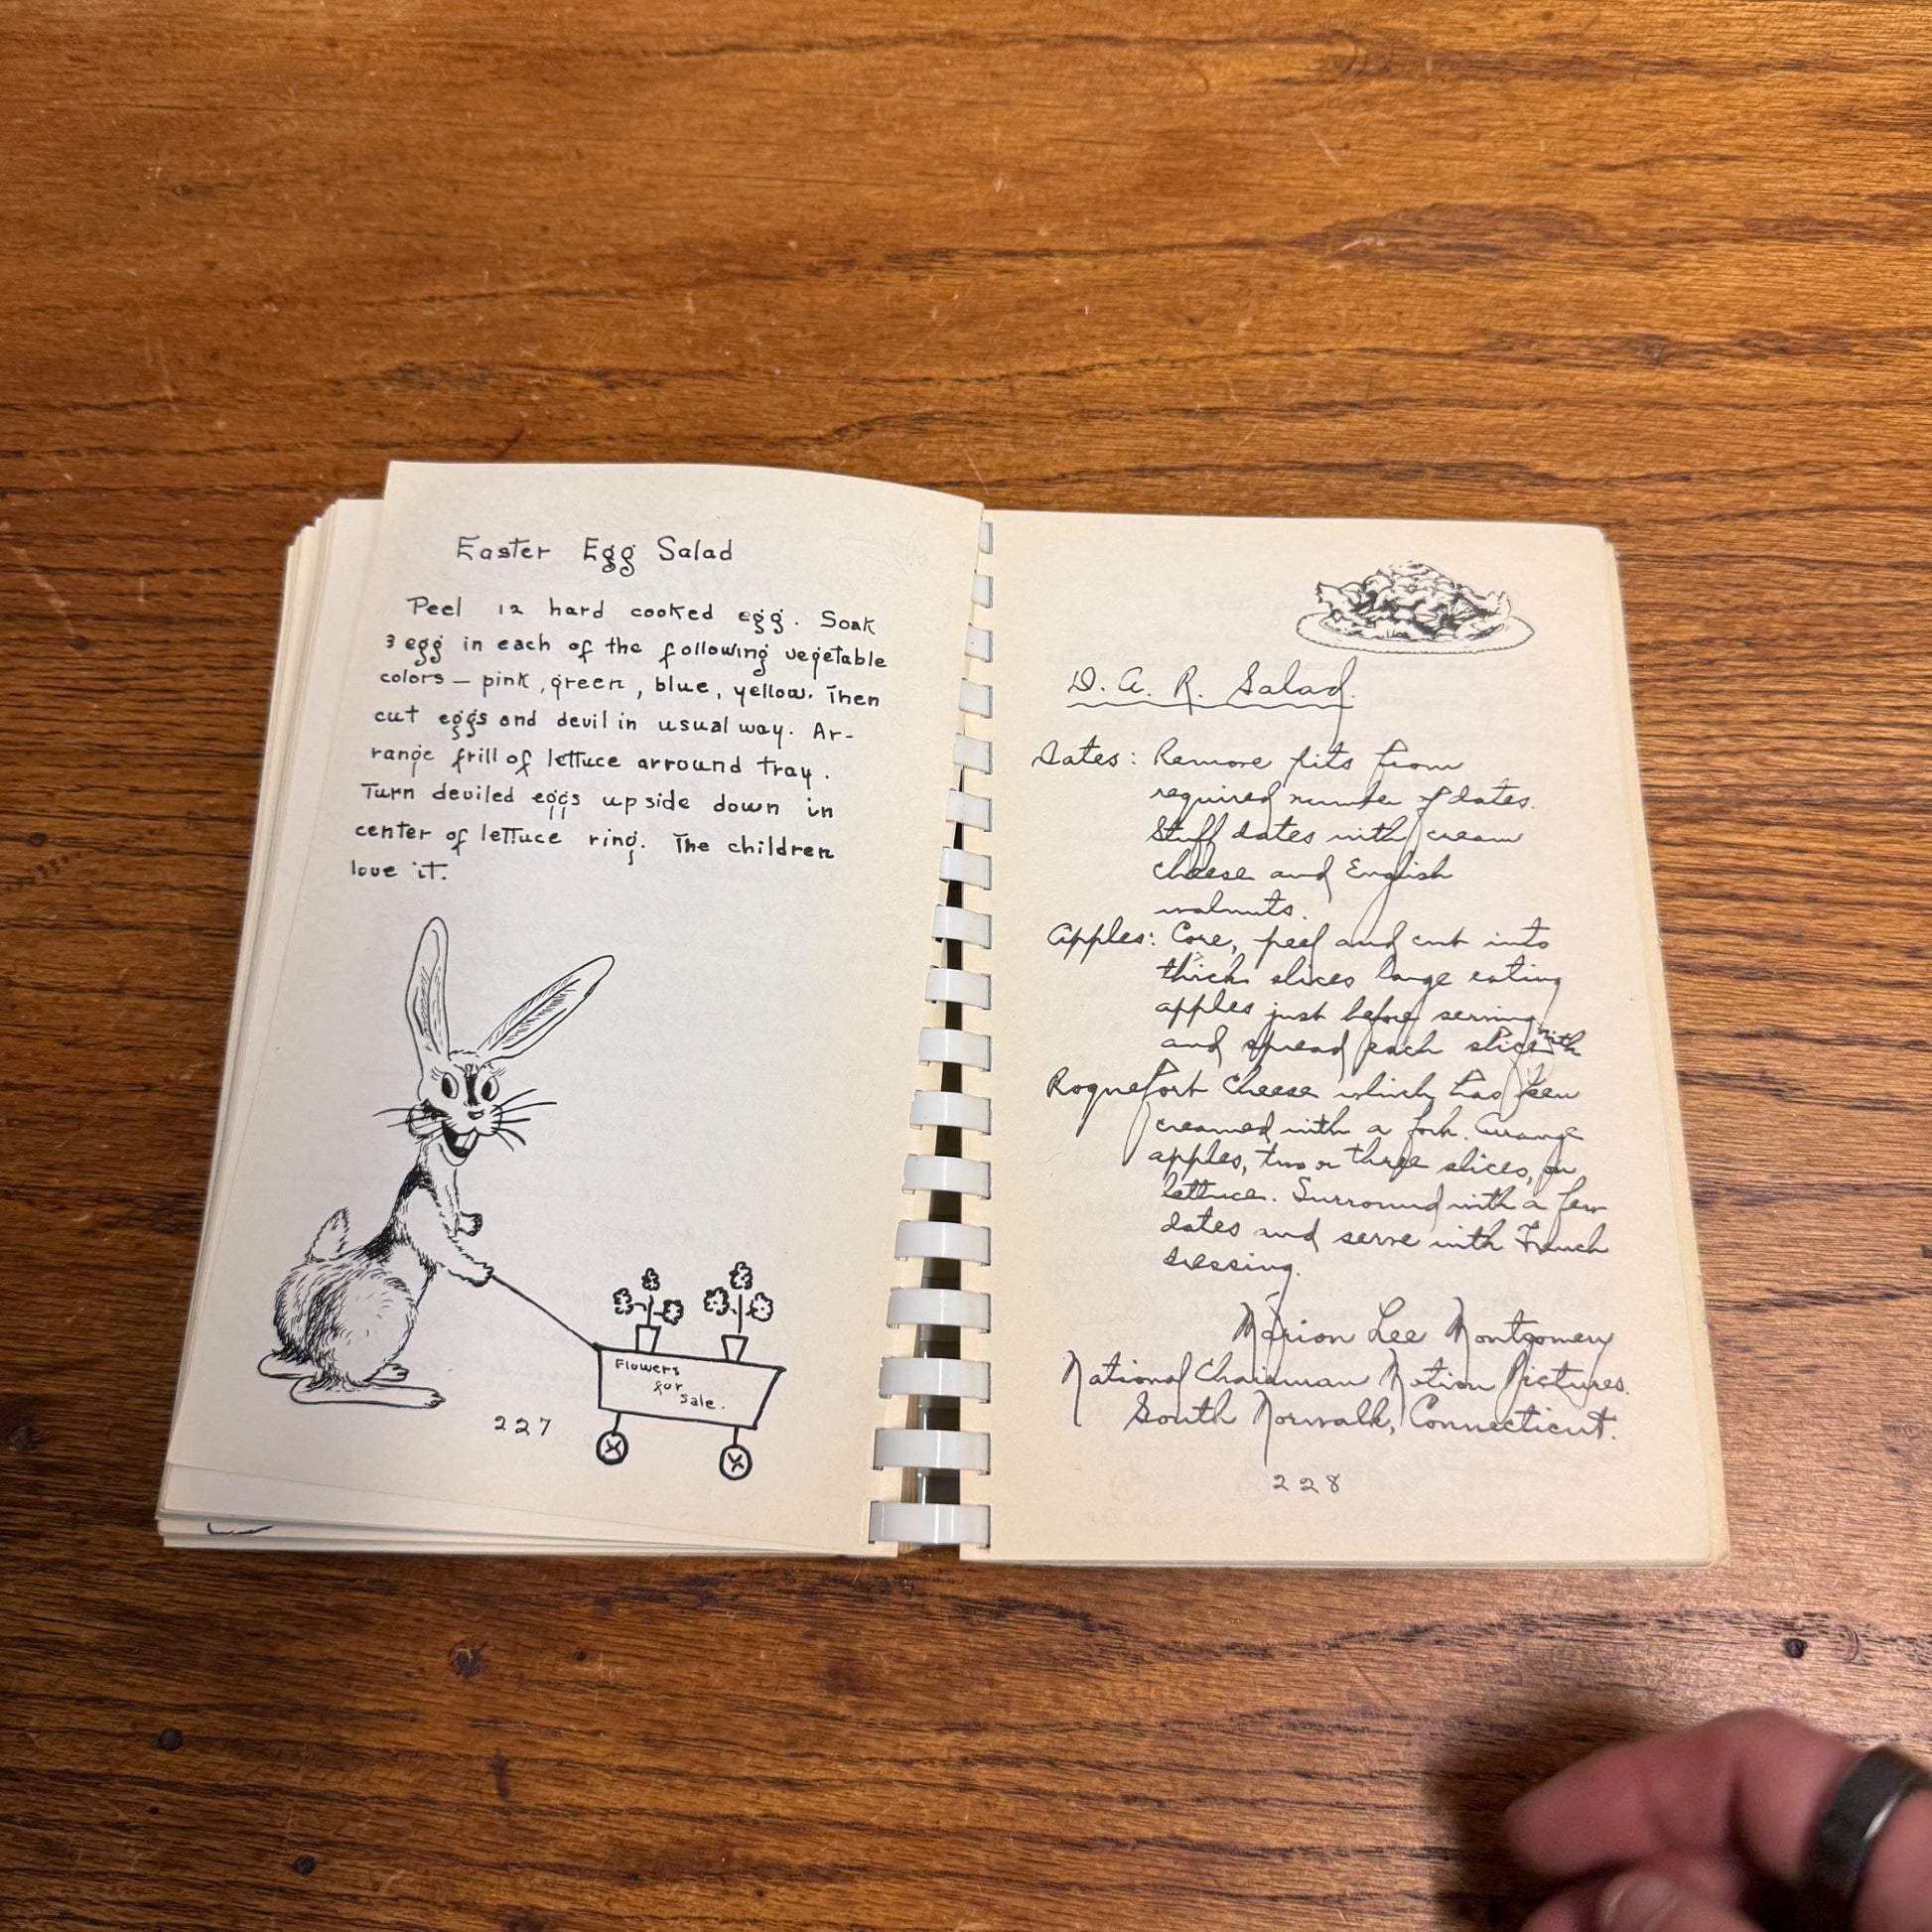 Easter Egg Salad
Peel 12 hard cooked egg. Soak
3 egg in each of the following vegetable
colors — pink, green, blue, yellow. Then
cut eggs and devil in usual way. Ar-
range frill of lettuce arround tray.
Turn deviled eggs upside down in
center of lettuce ring. The children
love it.
Flowers
for
Sale.
227
D. A. R. Salad.
Dates: Remove pits from
required number of dates.
Stuff dates with cream
cheese and English
walnuts.
Apples: Core, peel and cut into
thick slices large eating
apples just before serving
and spread each slice with
Roquefort Cheese which has been
creamed with a fork. Arrange
apples, two or three slices, on
lettuce. Surround with a few
dates and serve with French
dressing.
Marion Lee Montgomery
National Chairman Motion Pictures.
South Norwalk, Connecticut.
228